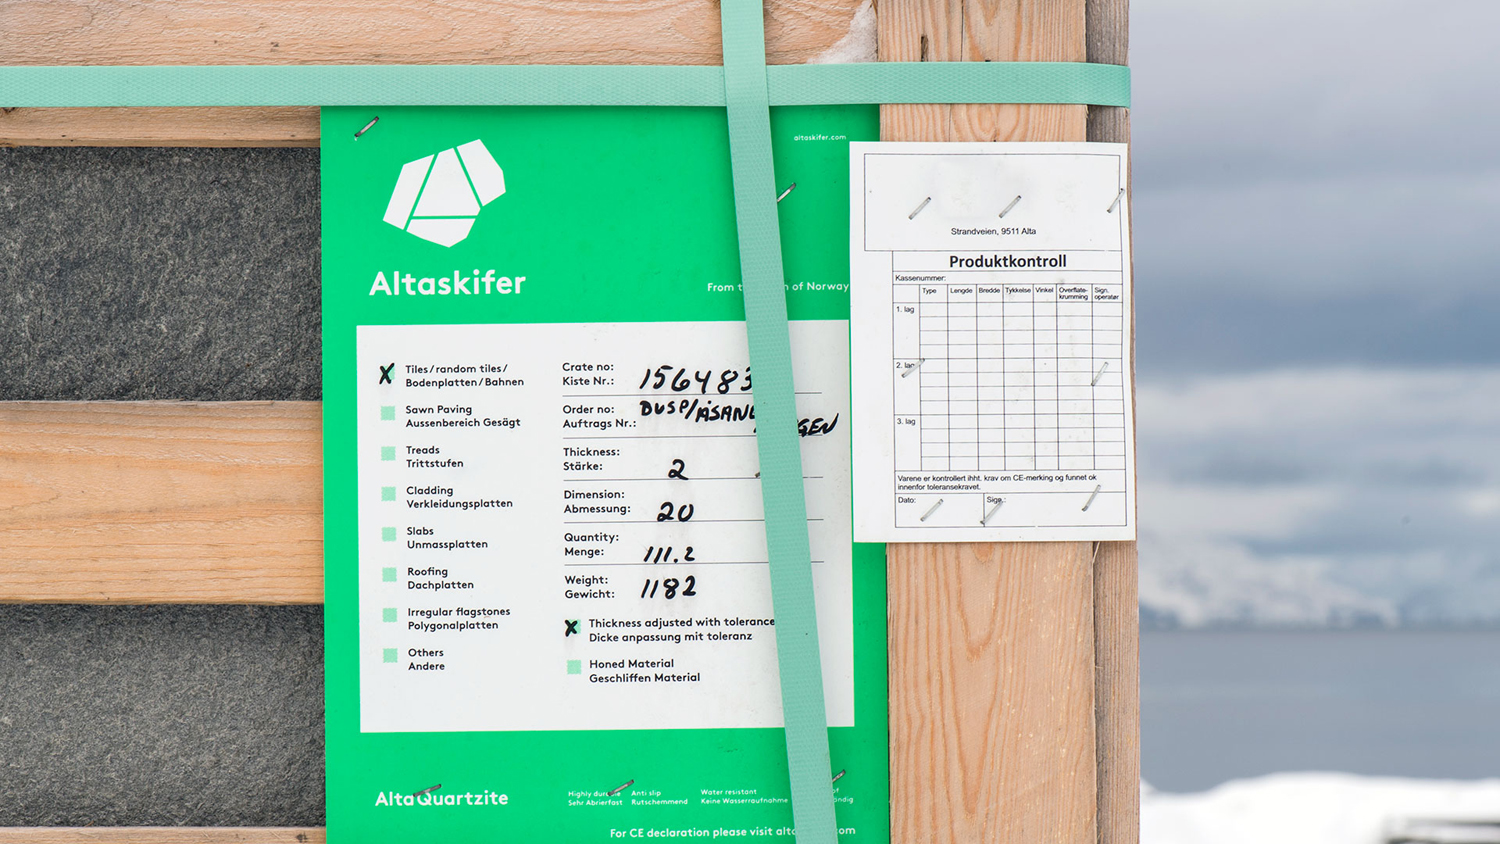 altaskifer.com
Altaskifer
From of Norway
Tiles/random tiles/
Bodenplatten/Bahnen
Sawn Paving
Aussenbereich Gesägt
Treads
Trittstufen
Cladding
Verkleidungsplatten
Slabs
Unmassplatten
Roofing
Dachplatten
Irregular flagstones
Polygonalplatten
Others
Andere
Crate no:
Kiste Nr.: 156483
Order no: DUSP/
Auftrags Nr.:
Thickness:
Stärke: 2
Dimension:
Abmessung: 20
Quantity:
Menge: 111.2
Weight:
Gewicht: 1182
Thickness adjusted with tolerance
Dicke anpassung mit toleranz
Honed Material
Geschliffen Material
AltaQuartzite
Highly
Sehr Abrierfast
Anti slip
Rutschemmend
Water resistant
Keine Wasseraufnahme
For CE declaration please visit
Strandveien, 9511 Alta
Produktkontroll
Kassenummer:
Type Lengde Bredde Tykkelse Vinkel Overflate- Sign.
krumming operatør
1. lag
2. lag
3. lag
Varene er kontrollert ihht. krav om CE-merking og funnet ok
innenfor toleransekravet.
Dato: Sign.: